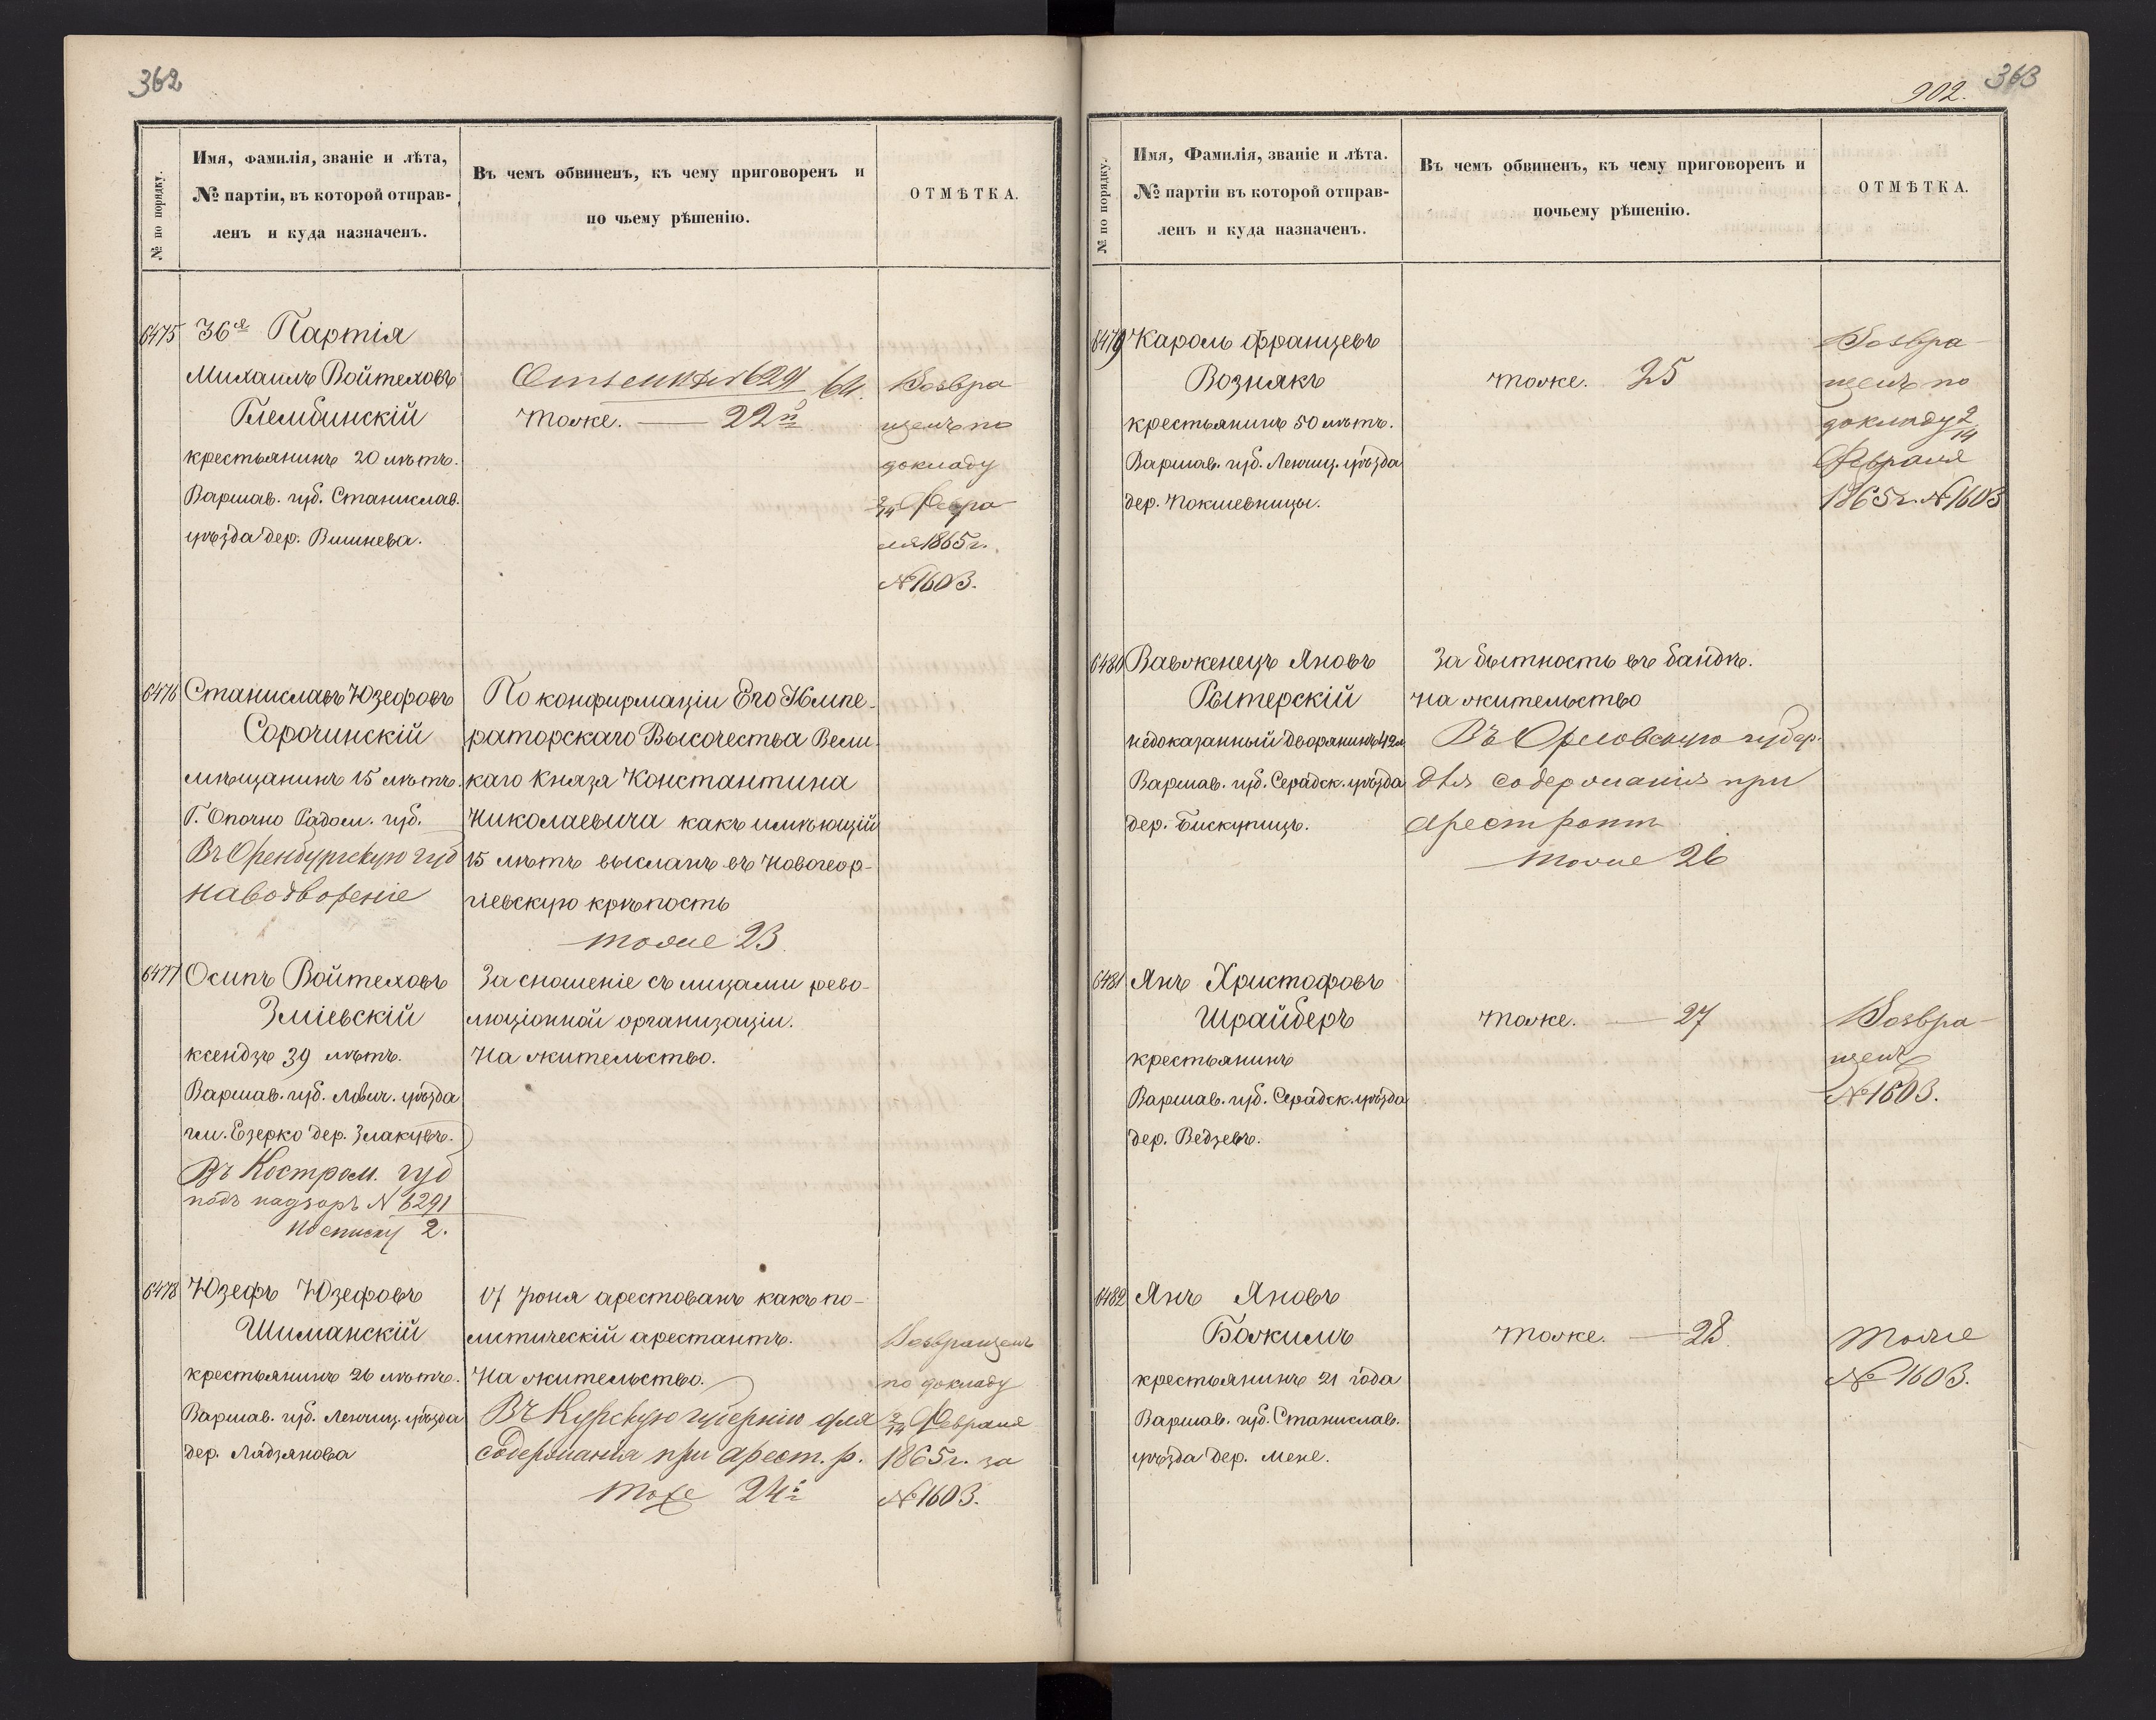 362
№ по порядку.
Имя, фамилія, званіе и лѣта,
№ партіи, въ которой отправ-
ленъ и куда назначенъ.
Въ чемъ обвиненъ, къ чему приговоренъ и
по чьему рѣшенію.
ОТМѢТКА.
6475
36я Партія
Михаилъ Войтеховъ
Глембинскій
крестьянинъ 20 лѣтъ.
Варшав. губ. Станислав.
уѣзда дер. Вишнева.
6291/64.
тоже. — 22й
Возвра-
щенъ по
докладу
2/14 Февра-
ля 1865 г.
№ 1603.
6476
Станиславъ Юзефовъ
Сорочинскій
мѣщанинъ 15 лѣтъ.
Г. Опочно Радом. губ.
Въ Оренбургскую губ
на водвореніе
По конфирмаціи Его Импе-
раторскаго Высочества Вели-
каго Князя Константина
Николаевича какъ имѣющій
15 лѣтъ высланъ въ Новогеор-
гіевскую крѣпость
тоже 23.
6477
Осипъ Войтеховъ
Зміевскій
ксендзъ 39 лѣтъ.
Варшав. губ. Лович. уѣзда
гм. Езерко дер. Злакувъ.
Въ Костром. губ
подъ надзоръ № 6291
по списку 2.
За сношеніе съ лицами рево-
люціонной организаціи.
На жительство.
6478
Юзефъ Юзефовъ
Шиманскій
крестьянинъ 26 лѣтъ.
Варшав. губ. Ленчиц. уѣзда
дер. Лядзянова
17 Іюня арестованъ какъ по-
литическій арестантъ.
На жительство.
Въ Курскую губернію для
содержанія при арест. р.
тоже 24й
Возвращенъ
по докладу
2/14 Февраля
1865 г. за
№ 1603.
363
902.
№ по порядку.
Имя, Фамилія, званіе и лѣта.
№ партіи въ которой отправ-
ленъ и куда назначенъ.
Въ чемъ обвиненъ, къ чему приговоренъ и
почьему рѣшенію.
ОТМѢТКА.
6479
Кароль Францевъ
Вознякъ
крестьянинъ 50 лѣтъ.
Варшав. губ. Ленчиц. уѣзда
дер. Покшевницы.
тоже. 25
Возвра-
щенъ по
докладу 2/14
Февраля
1865 г. № 1603
6480
Вавженецъ Яновъ
Рытерскій
недоказанный дворянинъ 42 л.
Варшав. губ. Серадск. уѣзда
дер. Бискупицъ.
За бытность въ бандѣ.
на жительство
Въ Орловскую губер.
для содержанія при
арест ротѣ
тоже 26
6481
Янъ Христофовъ
Шрайберъ
крестьянинъ
Варшав. губ. Серадск. уѣзда
дер. Ведзевъ.
тоже. — 27
Возвра-
щенъ
№ 1603.
6482
Янъ Яновъ
Божимъ
крестьянинъ 21 года
Варшав. губ. Станислав.
уѣзда дер. Мене.
тоже. — 28.
тоже
№ 1603.